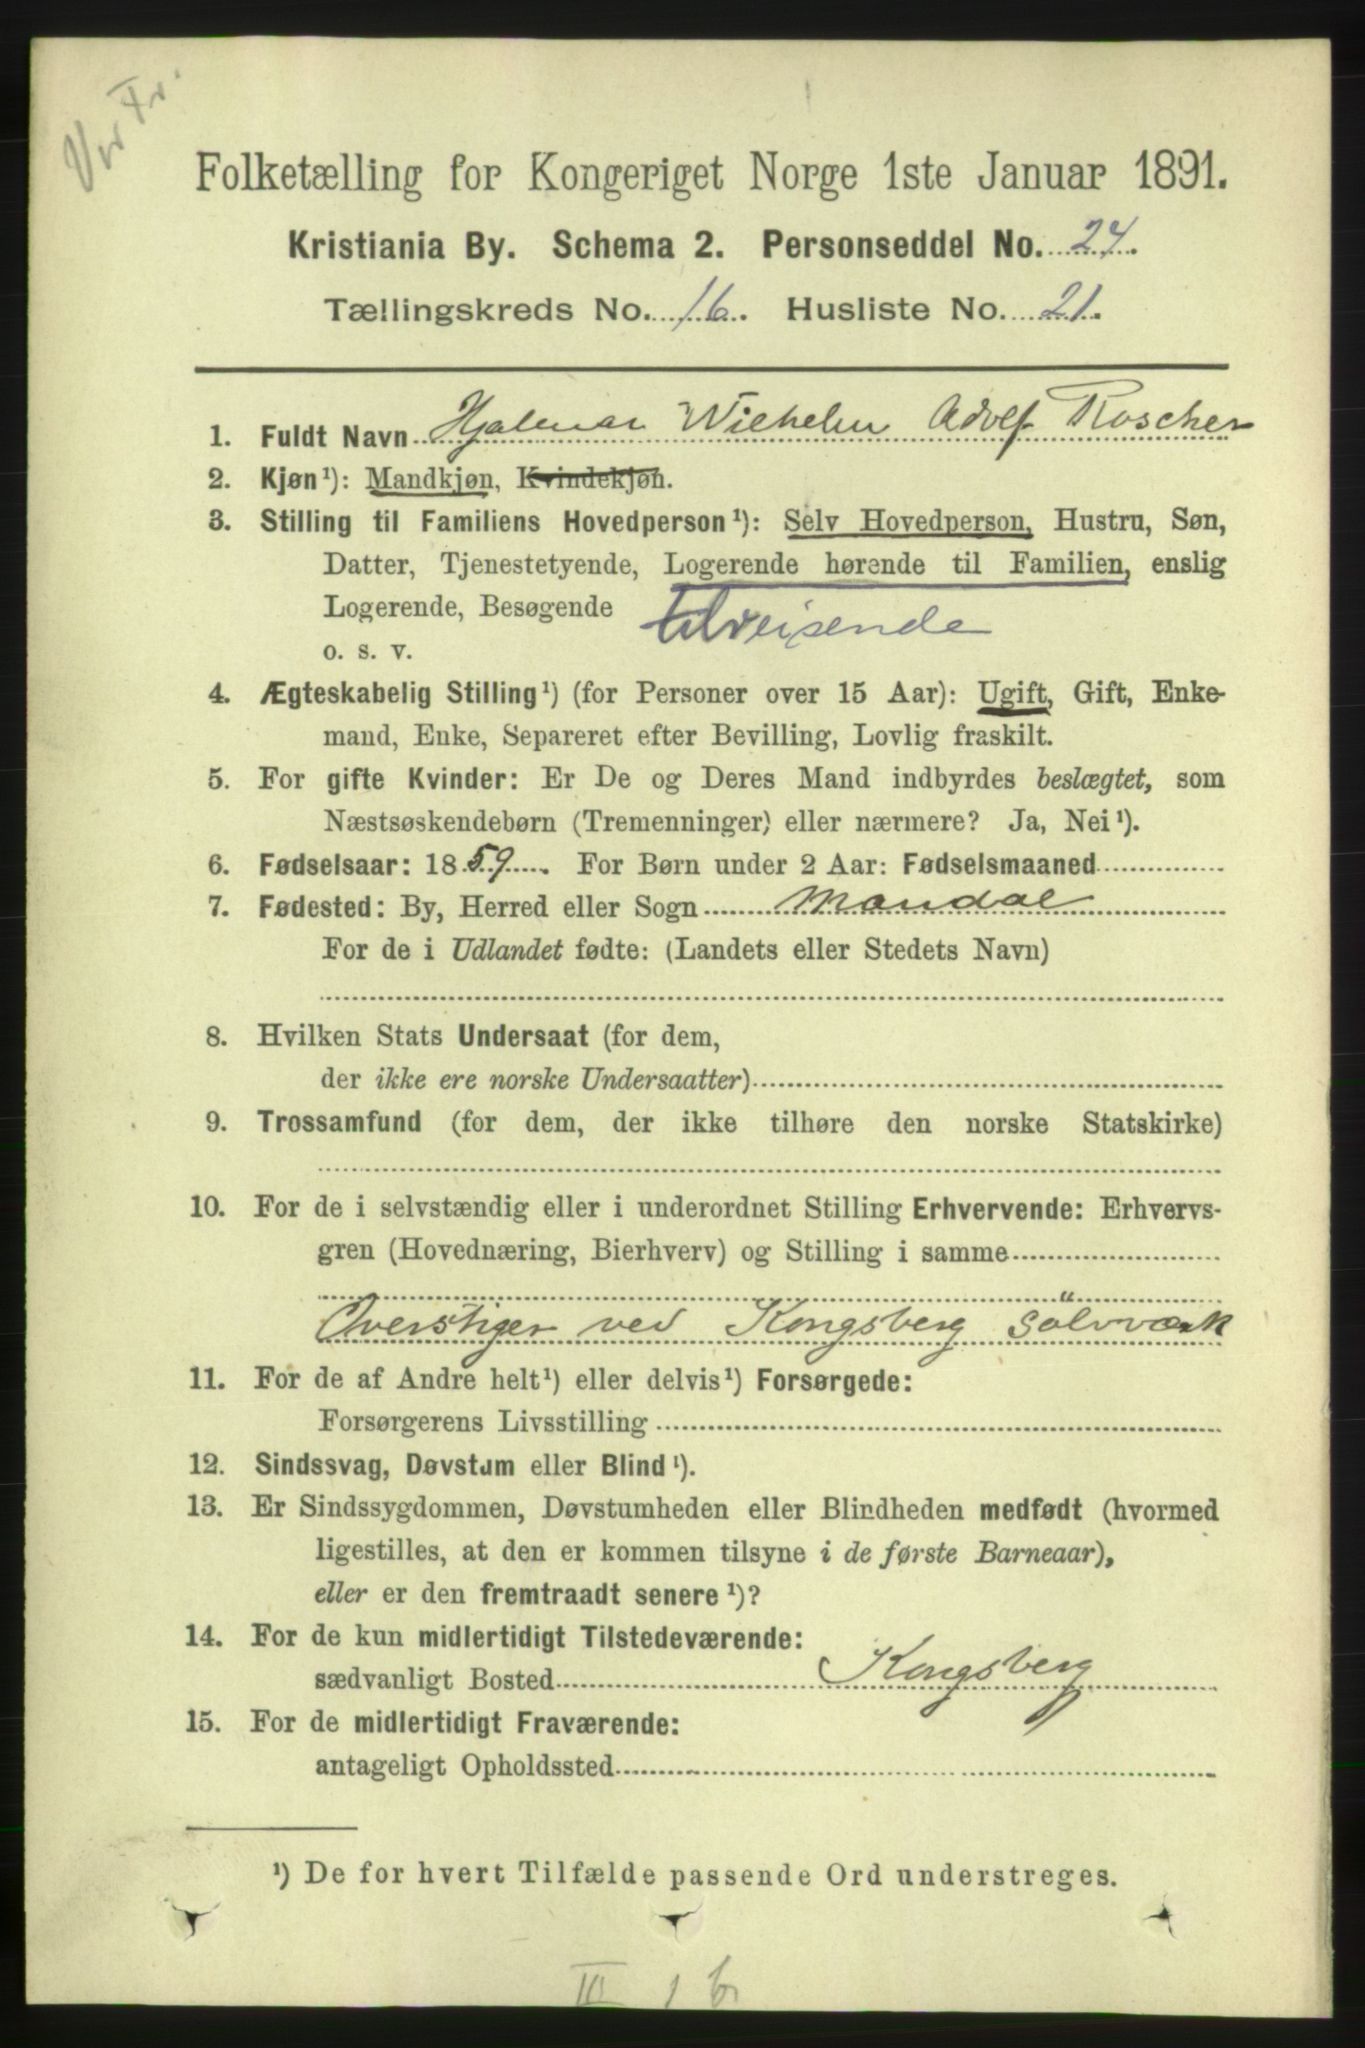 Folketælling for Kongeriget Norge 1ste Januar 1891.
Kristiania By. Schema 2. Personseddel No. 24.
Tællingskreds No. 16. Husliste No. 21.
1. Fuldt Navn Hjalmar Wilhelm Adolf Roscher
2. Kjøn¹): Mandkjøn, Kvindekjøn.
3. Stilling til Familiens Hovedperson¹): Selv Hovedperson, Hustru, Søn,
Datter, Tjenestetyende, Logerende hørende til Familien, enslig
Logerende, Besøgende tilreisende
o. s. v.
4. Ægteskabelig Stilling¹) (for Personer over 15 Aar): Ugift, Gift, Enke-
mand, Enke, Separeret efter Bevilling, Lovlig fraskilt.
5. For gifte Kvinder: Er De og Deres Mand indbyrdes beslægtet, som
Næstsøskendebørn (Tremenninger) eller nærmere? Ja, Nei¹).
6. Fødselsaar: 1859. For Børn under 2 Aar: Fødselsmaaned
7. Fødested: By, Herred eller Sogn Mandal
For de i Udlandet fødte: (Landets eller Stedets Navn)
8. Hvilken Stats Undersaat (for dem,
der ikke ere norske Undersaatter)
9. Trossamfund (for dem, der ikke tilhøre den norske Statskirke)
10. For de i selvstændig eller i underordnet Stilling Erhvervende: Erhvervs-
gren (Hovednæring, Bierhverv) og Stilling i samme
Overstiger ved Kongsberg Sölvværk
11. For de af Andre helt¹) eller delvis¹) Forsørgede:
Forsørgerens Livsstilling
12. Sindssvag, Døvstum eller Blind¹).
13. Er Sindssygdommen, Døvstumheden eller Blindheden medfødt (hvormed
ligestilles, at den er kommen tilsyne i de første Barneaar),
eller er den fremtraadt senere¹)?
14. For de kun midlertidigt Tilstedeværende:
sædvanligt Bosted Kongsberg
15. For de midlertidigt Fraværende:
antageligt Opholdssted
¹) De for hvert Tilfælde passende Ord understreges.
III 1 6